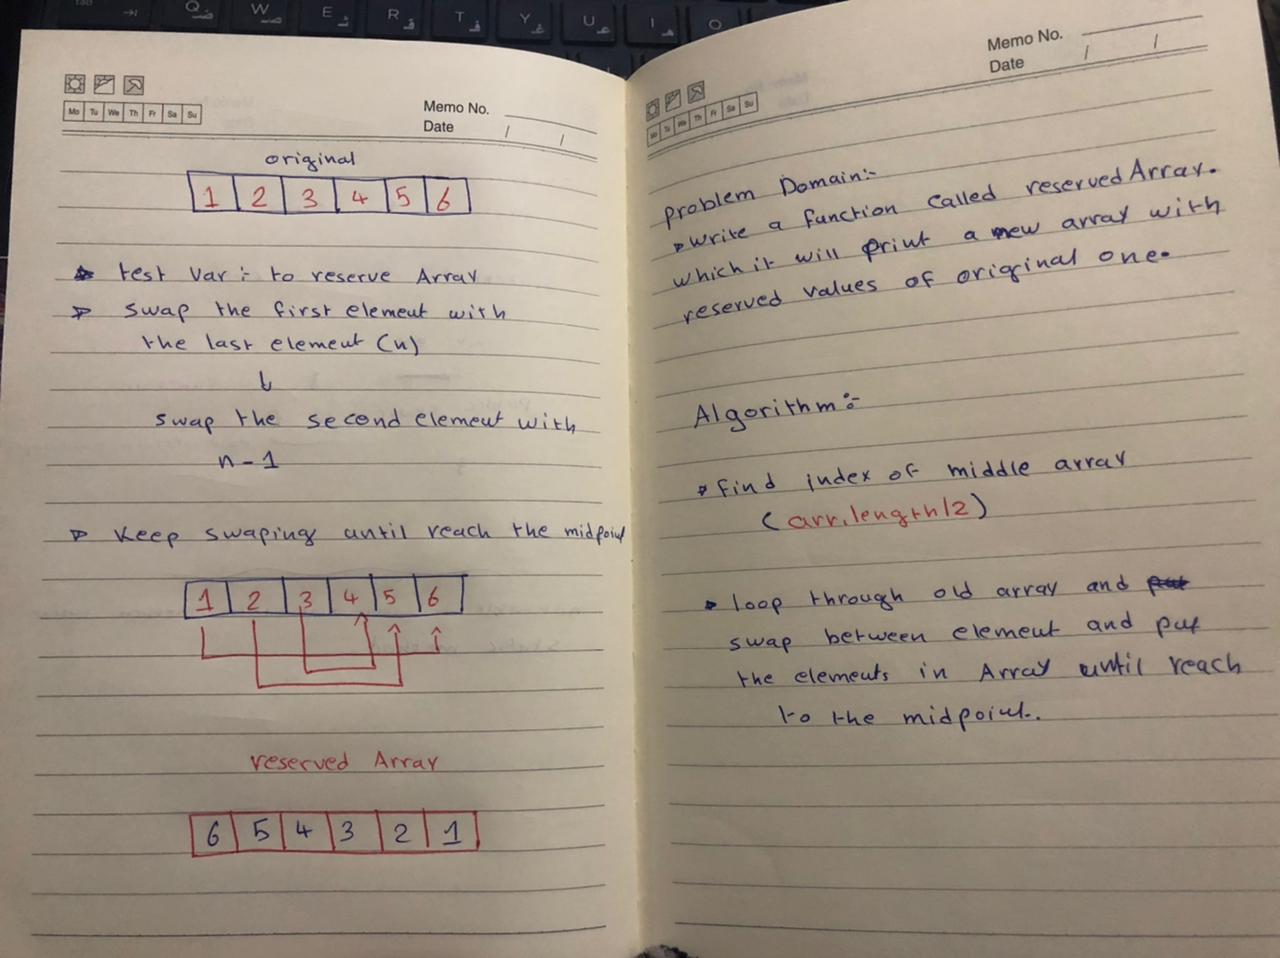 Q
W
E
R
T
Y
U
I
O
Mo Tu We Th Fr Sa Su
Memo No.
Date / /
original
1 2 3 4 5 6
test var :- to reserve Array
swap the first element with
the last element (n)
↓
swap the second element with
n-1
Keep swaping until reach the midpoint
1 2 3 4 5 6
reserved Array
6 5 4 3 2 1
Mo Tu We Th Fr Sa Su
Memo No.
Date / /
problem Domain:-
write a function called reservedArray.
which it will print a new array with
reserved values of original one.
Algorithm:-
find index of middle array
(arr.length/2)
loop through old array and put
swap between element and put
the elements in Array until reach
to the midpoint..